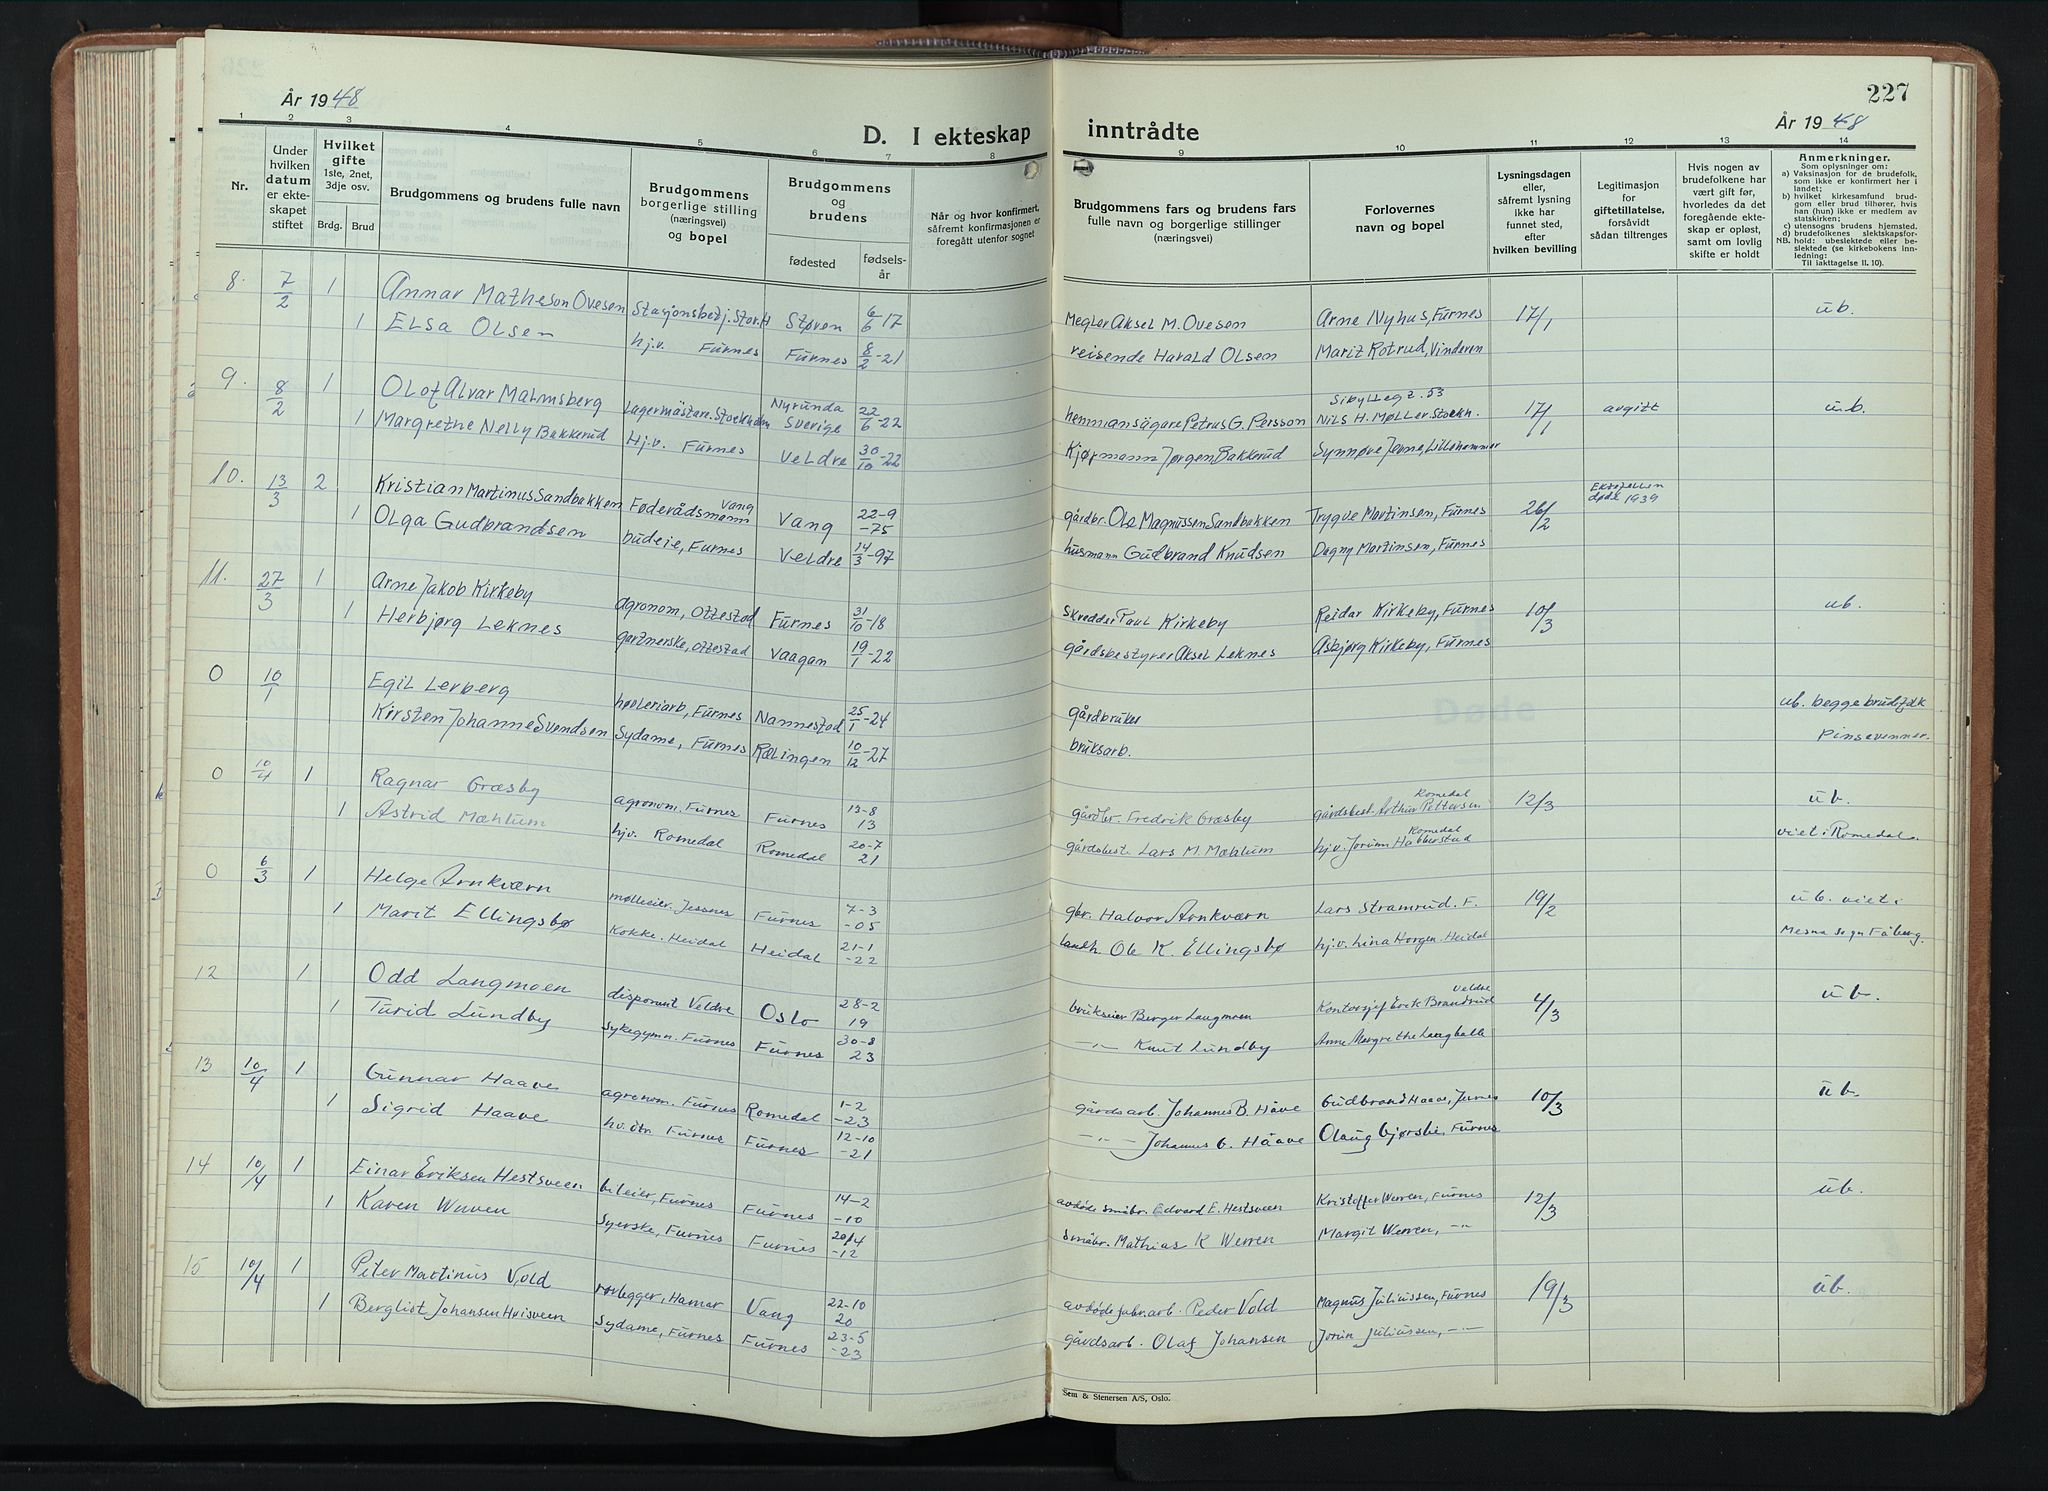 År 1948
D. I ekteskap
1 2 3 4 5 6 7 8
Nr.
Under hvilken datum er ekteskapet stiftet
Hvilket gifte 1ste, 2net, 3dje osv.
Brdg. Brud
Brudgommens og brudens fulle navn
Brudgommens borgerlige stilling (næringsvei) og bopel
Brudgommens og brudens
fødested fødsels-år
Når og hvor konfirmert, såfremt konfirmasjonen er foregått utenfor sognet
8. 7/2 1 Annar Matheson Ovesen Stasjonsbetj. Stor.H Støren 6/6 17
1 Elsa Olsen hj.v. Furnes Furnes 8/2-21
9. 8/2 1 Olof Alvar Malmsberg Lagermästare. Stockholm Nyrunda Sverige 22/6-22
1 Margrethe Nelly Bakkerud Hj.v. Furnes Veldre 30/10-22
10. 13/3 2 Kristian Martinus Sandbakken Føderådsmann Vang Vang 22-9 -75
1 Olga Gudbrandsen budeie, Furnes Veldre 14/3-97
11. 27/3 1 Arne Jakob Kirkeby agronom, Ottestad Furnes 31/10-18
1 Herbjørg Leknes gartnerske, Ottestad Vaagan 19/1-22
0 10/1 Egil Lerberg høvleriarb, Furnes Nannestad 25/1-24
Kirsten Johanne Svendsen Sydame, Furnes Rælingen 10/12-27
0 10/4 1 Ragnar Græsby agronom. Furnes Furnes 13-8 13
1 Astrid Mæhlum hjv. Romedal Romedal 20-7 21
0 6/3 1 Helge Arnkværn mølleeier. Jessnes Furnes 7-3 -05
1 Marit Ellingsbø Kokke. Heidal Heidal 21-1 -22
12 1 Odd Langmoen disponent Veldre Oslo 28-2 19
1 Turid Lundby Sykegymn. Furnes Furnes 30-8 23
13 10/4 1 Gunnar Haave agronom. Furnes Romedal 1-2 -23
1 Sigrid Haave hv.dtr. Furnes Furnes 12-10 -21
14 10/4 1 Einar Eriksen Hestsveen bileier, Furnes Furnes 14-2 -10
1 Karen Werven Syerske, Furnes Furnes 20/4 -12
15 10/4 1 Peter Martinus Vold rørlegger, Hamar Vang 22-10 20
1 Bergliot Johansen Hvisveen Sydame, Furnes Furnes 23-5 -23
227
År 1948
inntrådte
9 10 11 12 13 14
Brudgommens fars og brudens fars fulle navn og borgerlige stillinger (næringsvei)
Forlovernes navn og bopel
Lysningsdagen eller, såfremt lysning ikke har funnet sted, efter hvilken bevilling
Legitimasjon for giftetillatelse, forsåvidt sådan tiltrenges
Hvis nogen av brudefolkene har vært gift før, hvorledes da det foregående ekteskap er opløst, samt om lovlig skifte er holdt
Anmerkninger.
Som oplysninger om:
a) Vaksinasjon for de brudefolk, som ikke er konfirmert her i landet;
b) hvilket kirkesamfund brudgom eller brud tilhører, hvis han (hun) ikke er medlem av statskirken;
c) utensogns brudens hjemsted.
d) brudefolkenes slektskapsforhold: ubeslektede eller beslektede (se kirkebokens innledning;
NB. Til iakttagelse II. 10).
Megler Aksel M. Ovesen Arne Nyhus, Furnes 17/1 ub.
reisende Harald Olsen Marit Rotrud, Vinderen
Sibyllegt. 53
hemmansägare Petrus G. Persson Nils H. Møller. Stockh. 17/1 avgitt u.b.
Kjøpmann Jørgen Bakkerud Synnøve Jerne, Lillehammer
gårdbr. Ole Magnussen Sandbakken Trygve Martinsen, Furnes 26/2 Ektefellen døde 1939
husmann Gudbrand Knudsen Dagny Martinsen, Furnes
Skredder Paul Kirkeby Reidar Kirkeby, Furnes 10/3 ub.
gårdsbestyrer Aksel Leknes Asbjørg Kirkeby, Furnes
gårdbruker ub. begge brudefolk
bruksarb. Pinsevenner.
gårdbr. Fredrik Græsby gårdsbest. Arthur Pettersen Romedal 12/3 ub.
gårdsbest. Lars M. Mæhlum hj.v. Jorunn Habberstad Romedal viet i Romedal.
gbr. Halvor Arnkværn Lars Stramrud. F. 19/2 ub. viet i
landh. Ole K. Ellingsbø hj.v. Lina Horgen. Heidal Mesna sogn Fåberg.
brukseier Berger Langmoen Kontorsjef Erik Brandrud Veldre 4/3 ub.
-"- Knut Lundby Anne Margrethe Langballe
gårdsarb. Johannes B. Håve Gudbrand Haave, Furnes 10/3 ub.
-"- Johannes G. Håave Olaug Gjørsli, Furnes
avdøde småbr. Edvard E. Hestsveen Kristoffer Werven, Furnes 12/3 ub.
småbr. Mathias K Werven Margit Werven, -"-
avdøde fabr.arb. Peder Vold Magnus Juliussen, Furnes 19/3 ub.
gårdsarb. Olaf Johansen Jorun Juliussen, -"-
Sem & Stenersen A/S, Oslo.